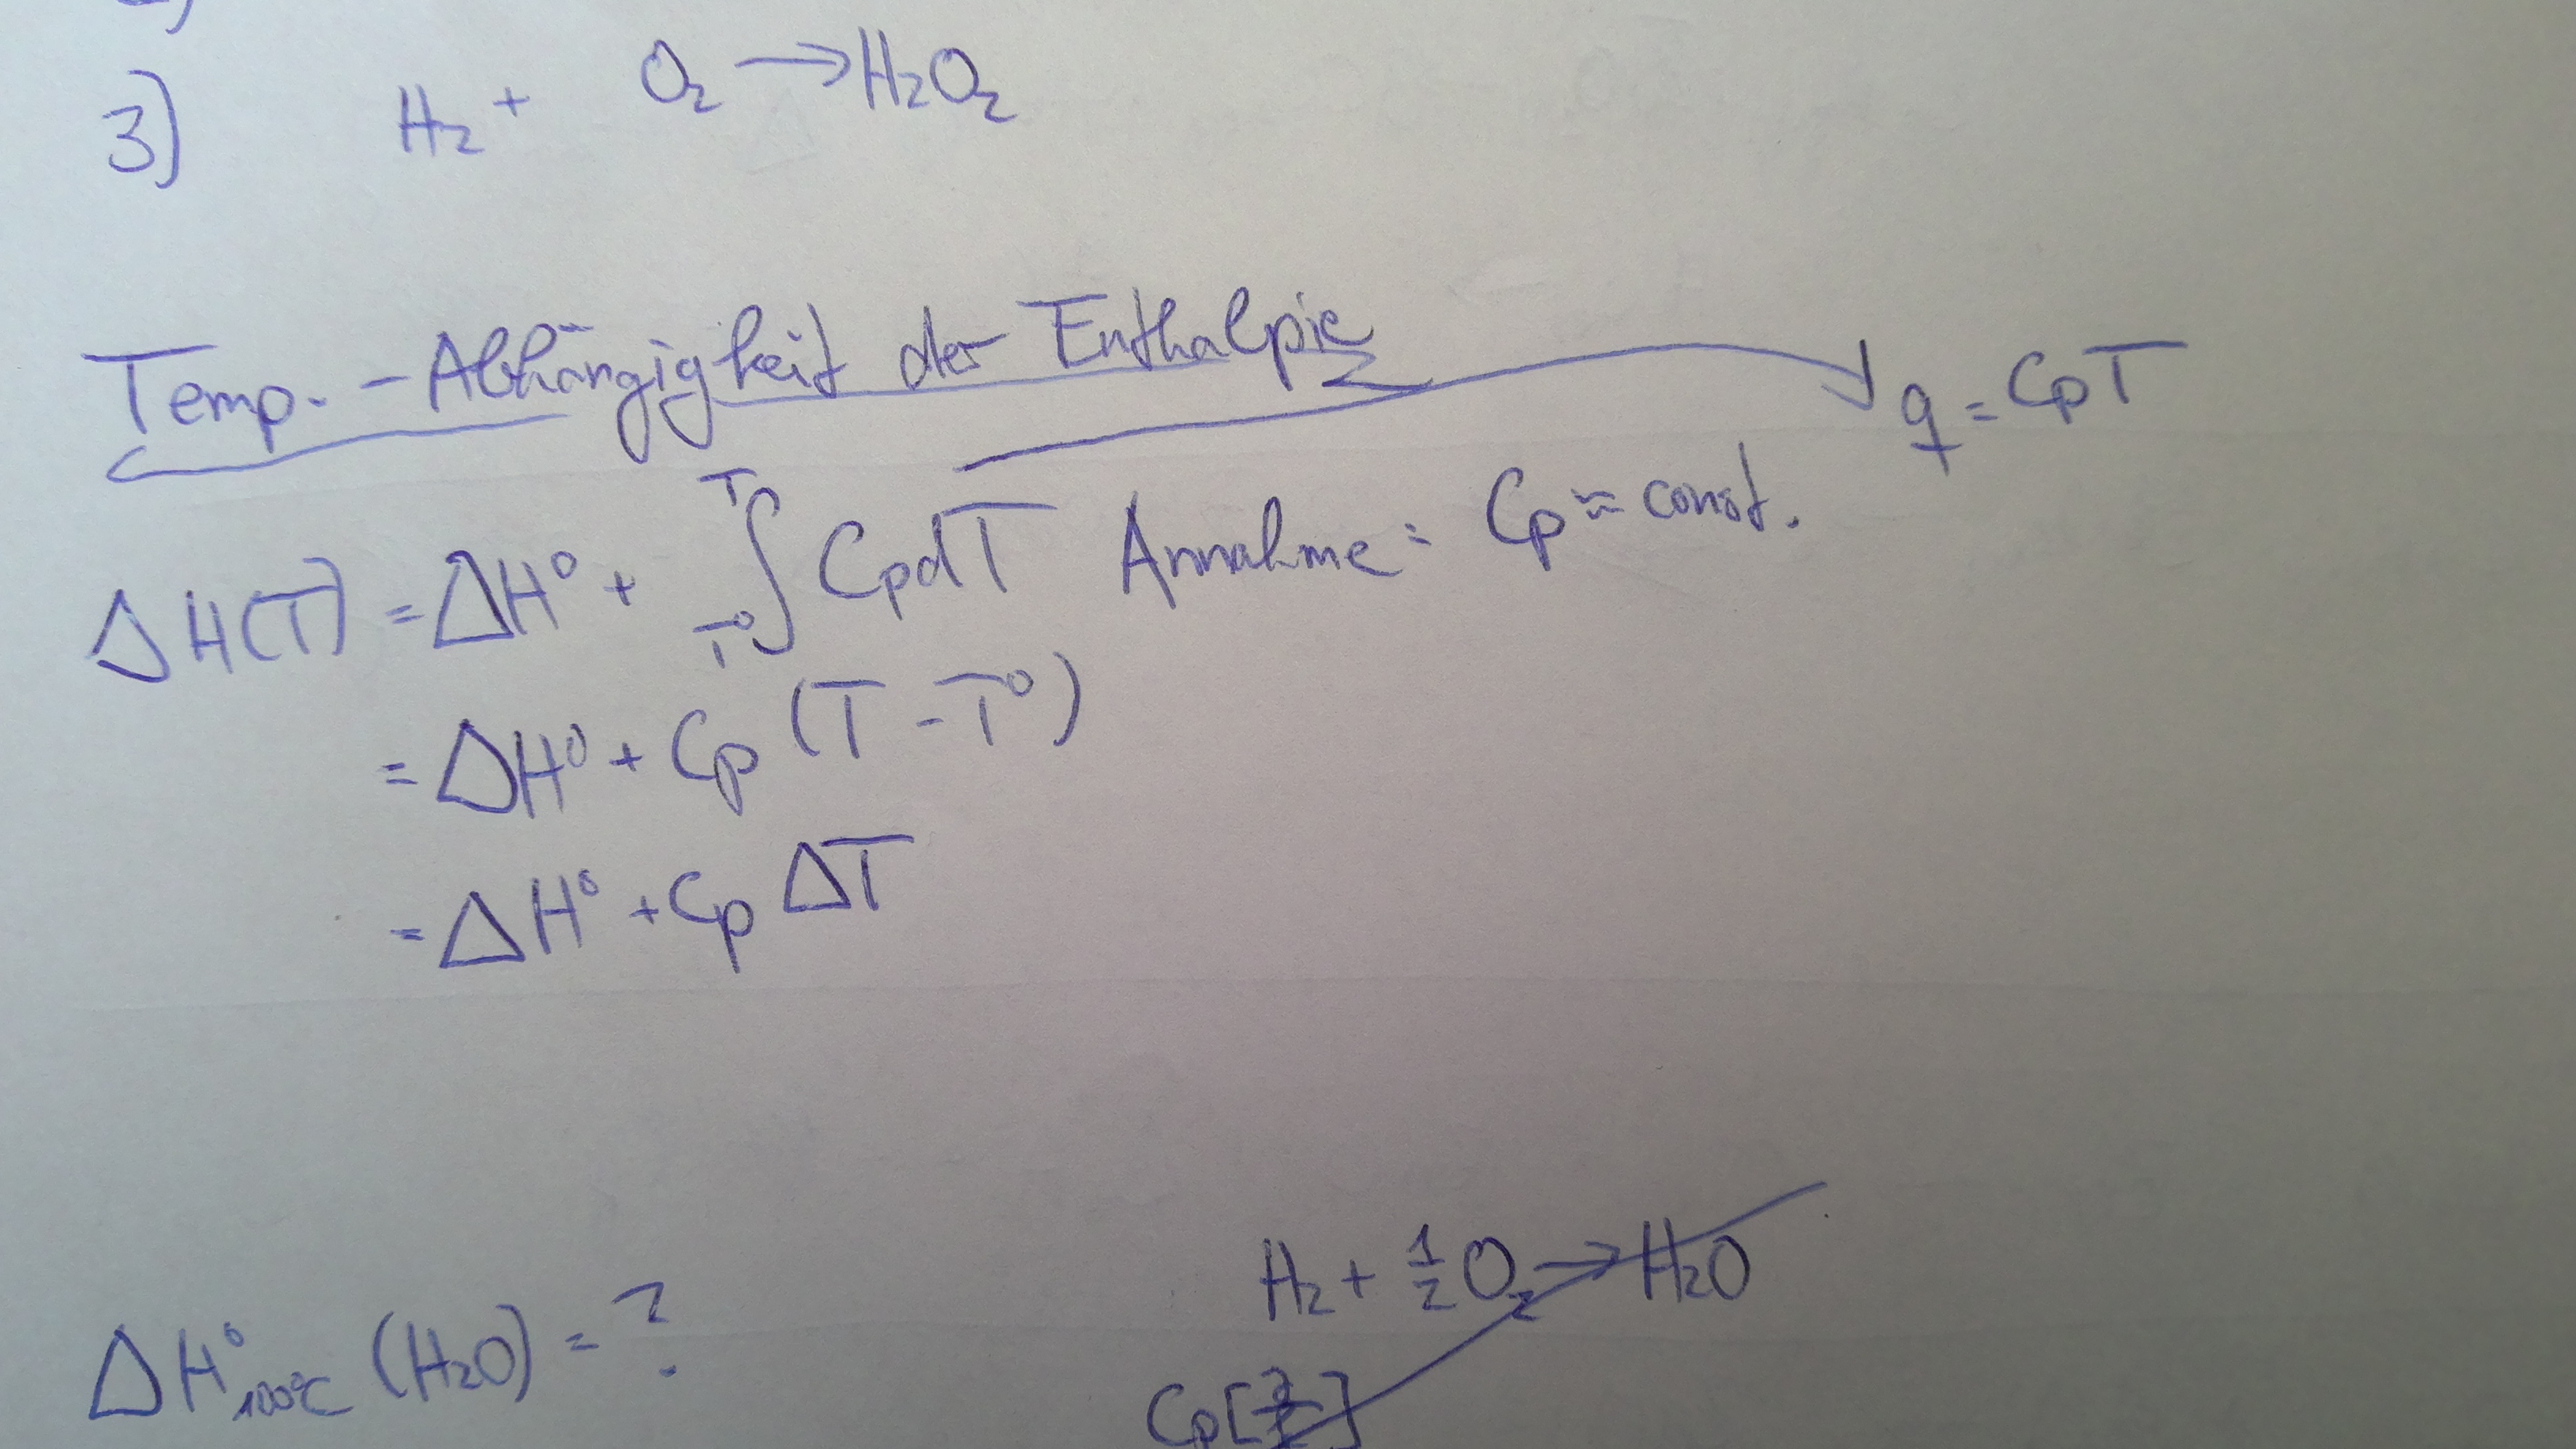 3) H₂ + O₂ → H₂O₂
Temp. - Abhängigkeit der Enthalpie
q = CpT
ΔH(T) = ΔH⁰ + ∫_{T⁰}^{T} CpdT Annahme: Cp ≈ const.
= ΔH⁰ + Cp (T - T⁰)
= ΔH⁰ + Cp ΔT
H₂ + ½ O₂ → H₂O
ΔH⁰₁₀₀°C (H₂O) = ?
Cp[